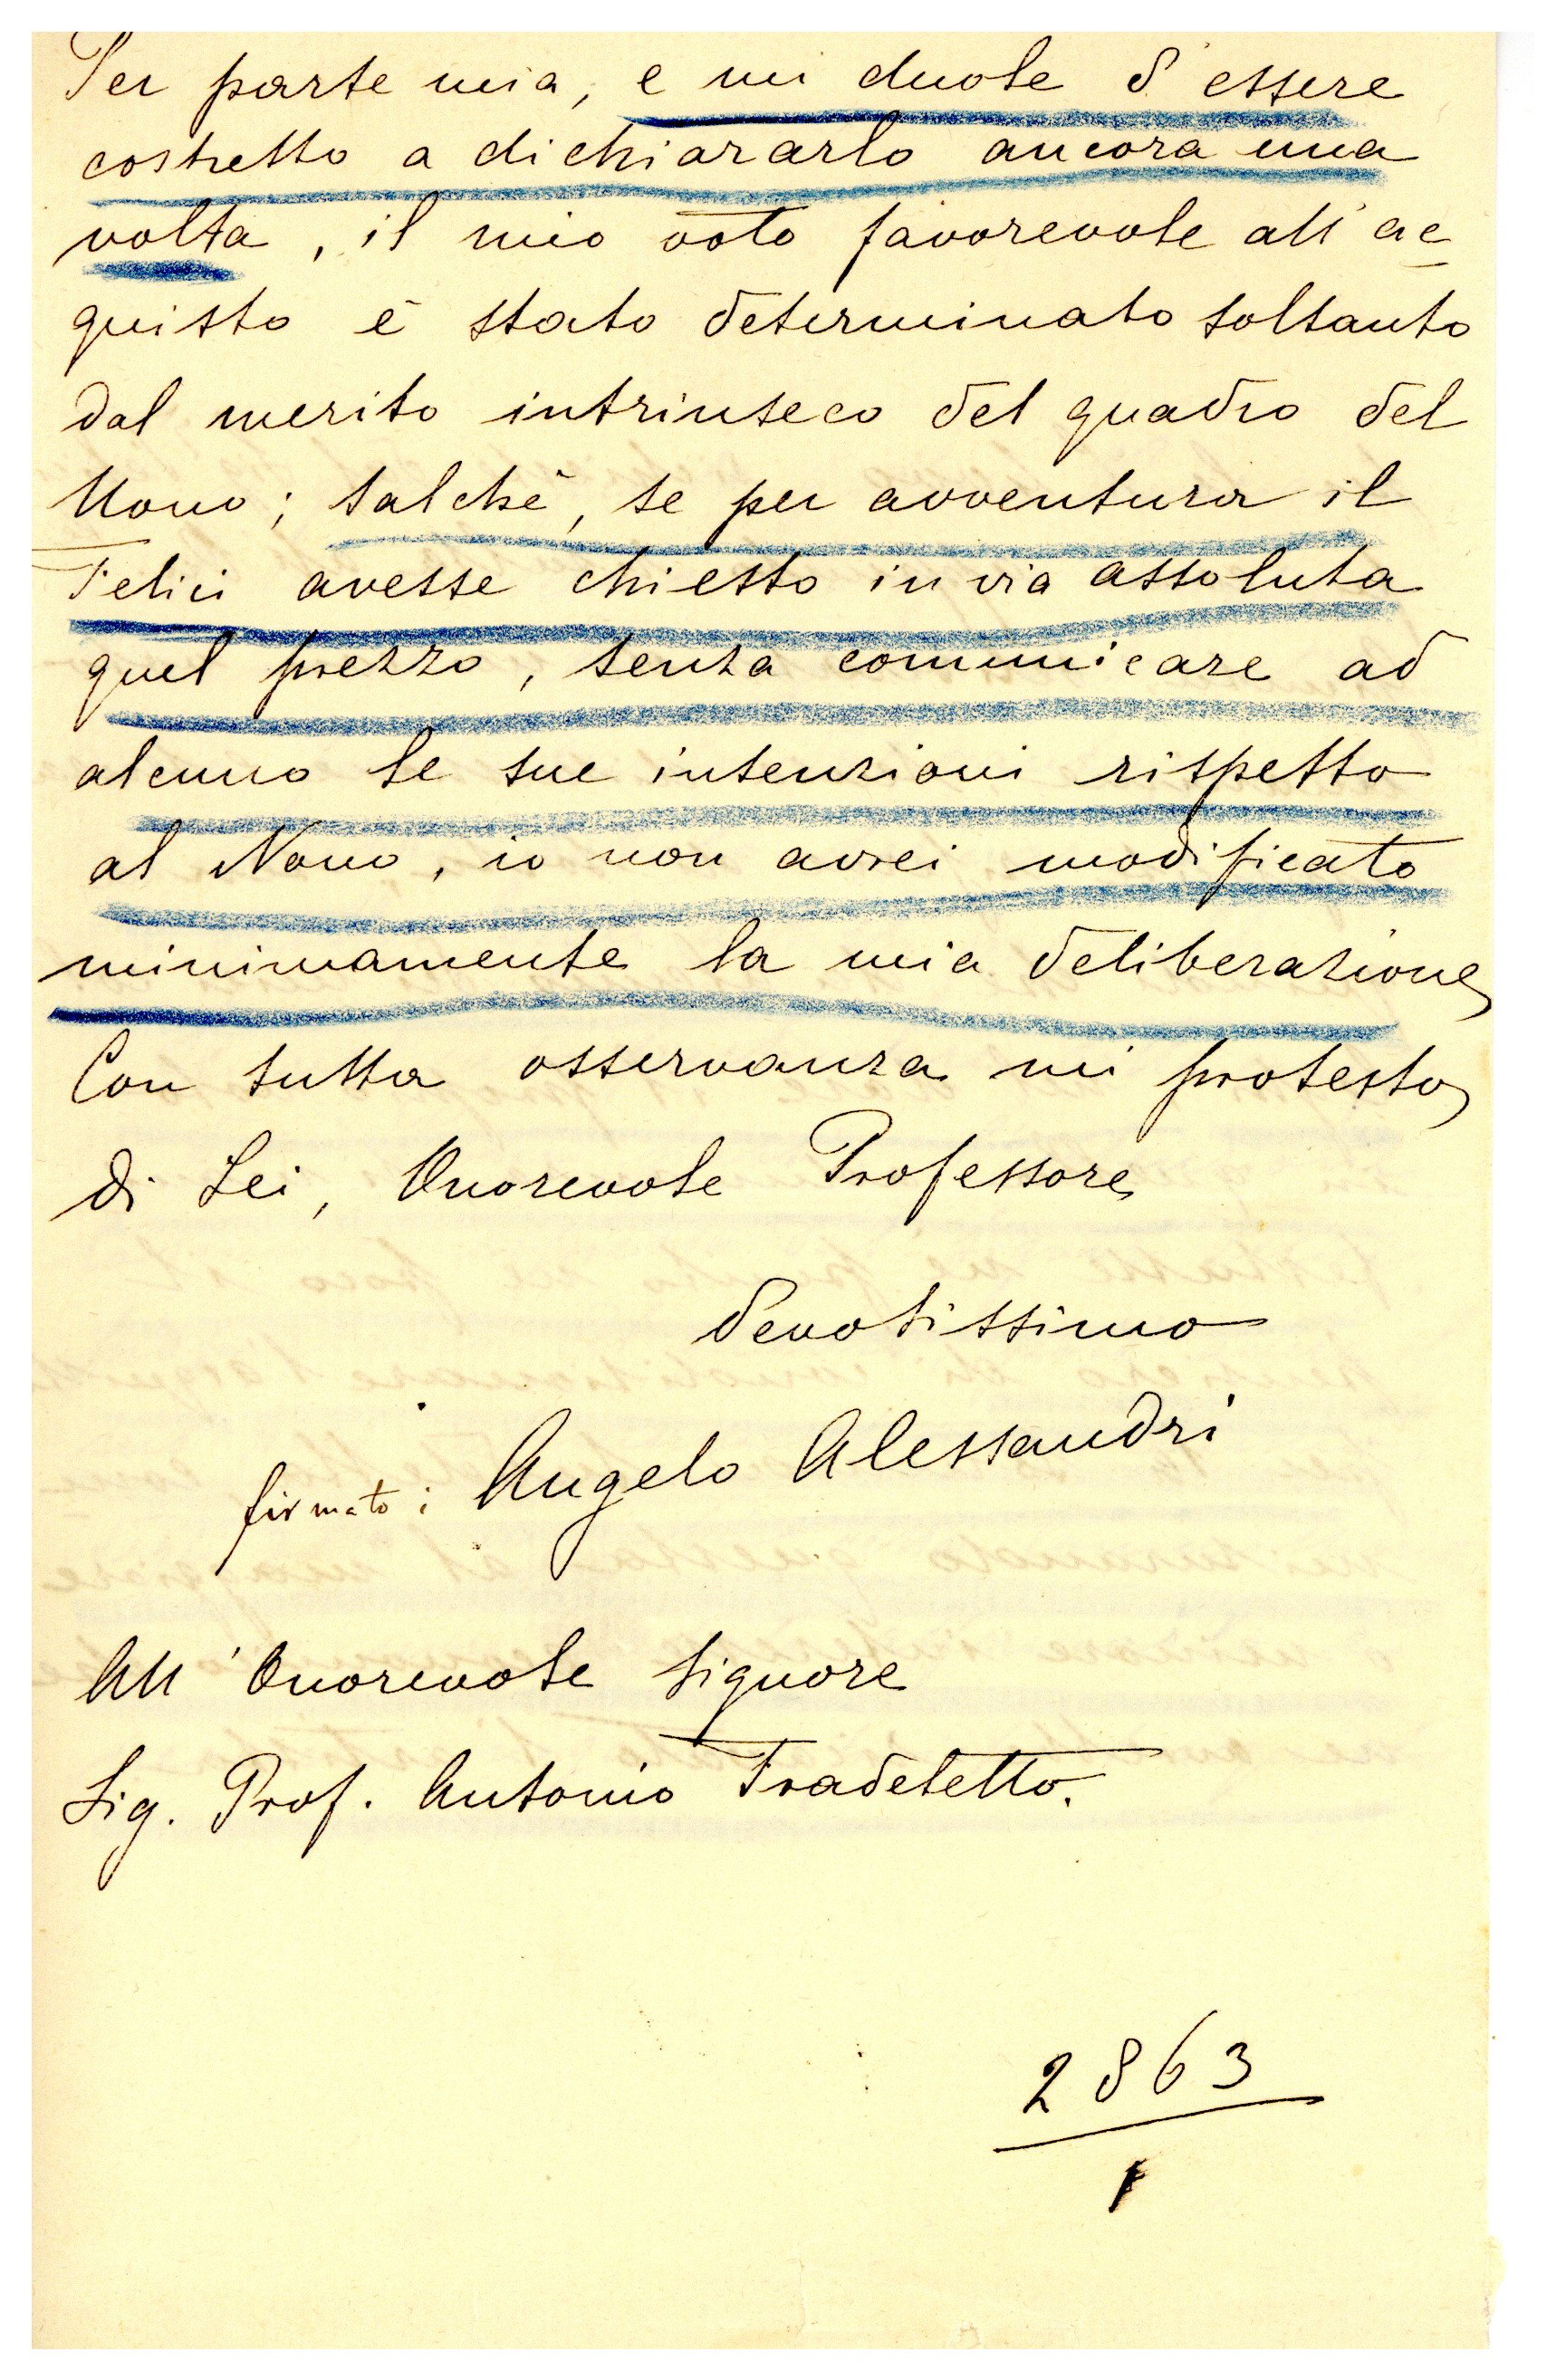 Per parte mia, e mi duole d'essere
costretto a dichiararlo ancora una
volta, il mio voto favorevole all'ac
quisto è stato determinato soltanto
dal merito intrinseco del quadro del
Nono; talchè, se per avventura il
Felici avesse chiesto in via assoluta
quel prezzo, senza comunicare ad
alcuno le sue intenzioni rispetto
al Nono, io non avrei modificato
minimamente la mia deliberazione
Con tutta osservanza mi protesto
di Lei, Onorevole Professore
devotissimo
firmato: Angelo Alessandri
All'Onorevole Signore
Sig. Prof. Antonio Fradeletto.
2863
1